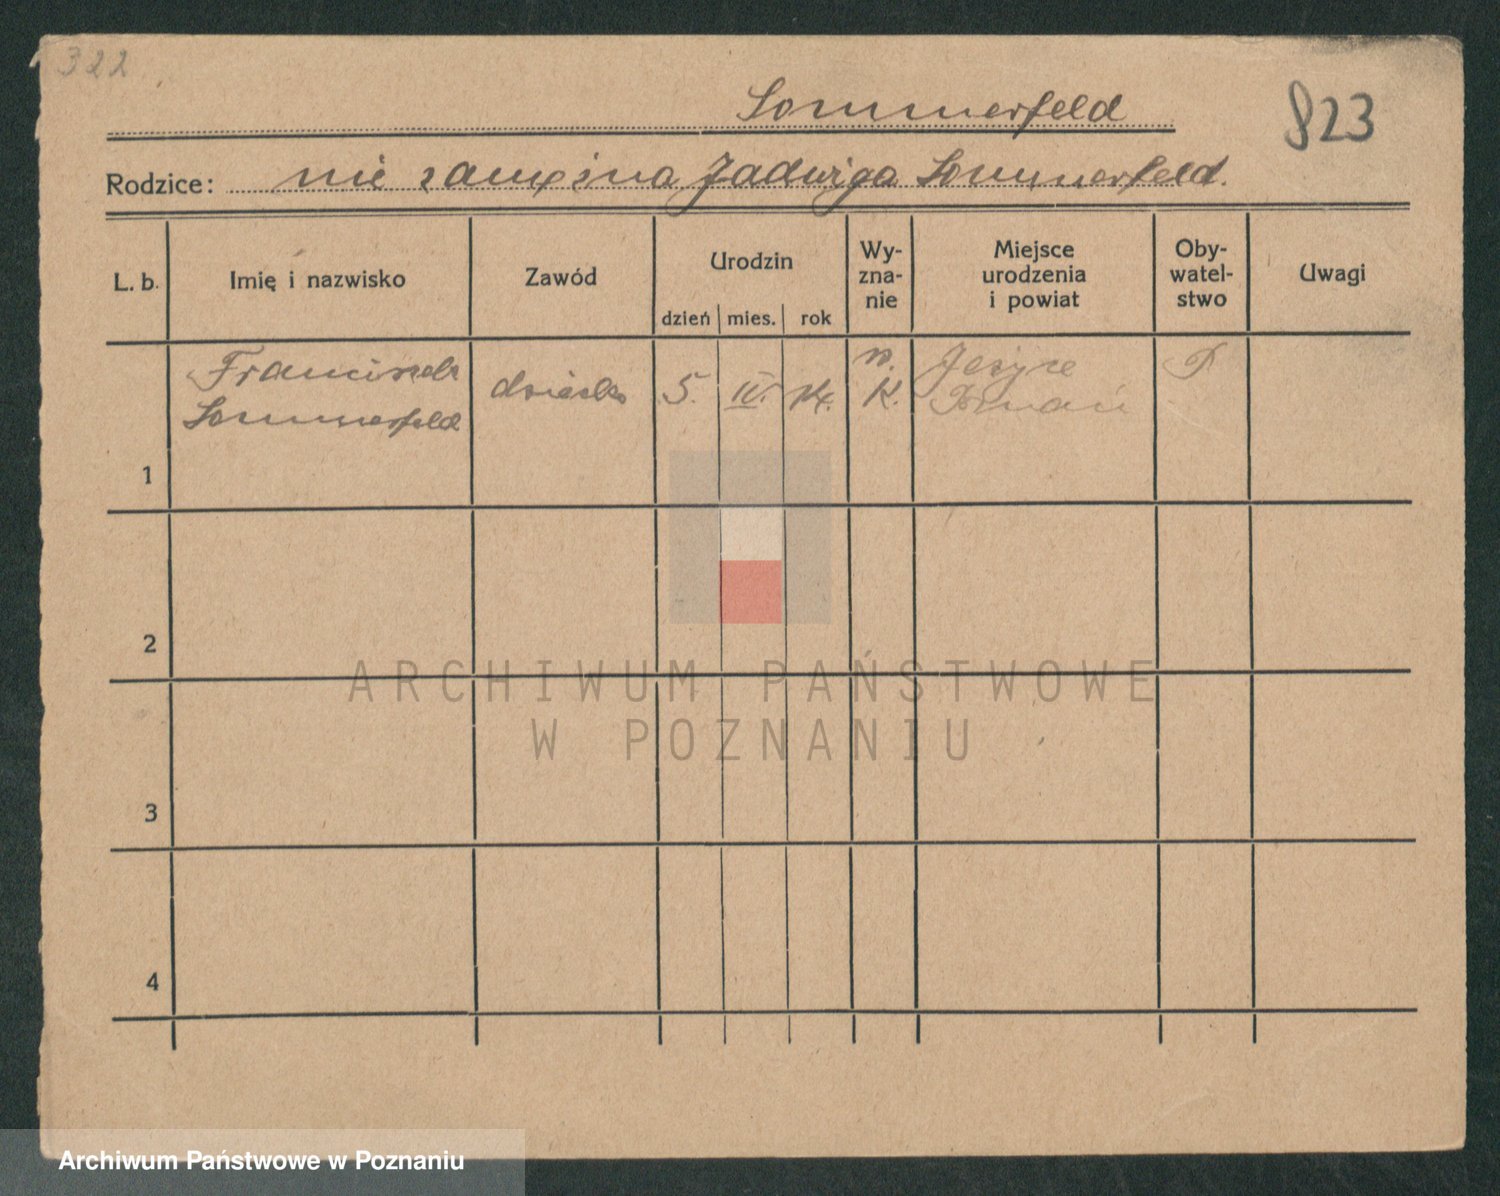 322
Sommerfeld
823
Rodzice: nie zamężna Jadwiga Sommerfeld.
L. b.
Imię i nazwisko
Zawód
Urodzin
dzień mies. rok
Wy-
zna-
nie
Miejsce
urodzenia
i powiat
Oby-
watel-
stwo
Uwagi
1
Franciszek
Sommerfeld
dziecko
5. IV. 14.
K.
Jeżyce
Poznań
P
2
3
4
ARCHIWUM PAŃSTWOWE
W POZNANIU
Archiwum Państwowe w Poznaniu